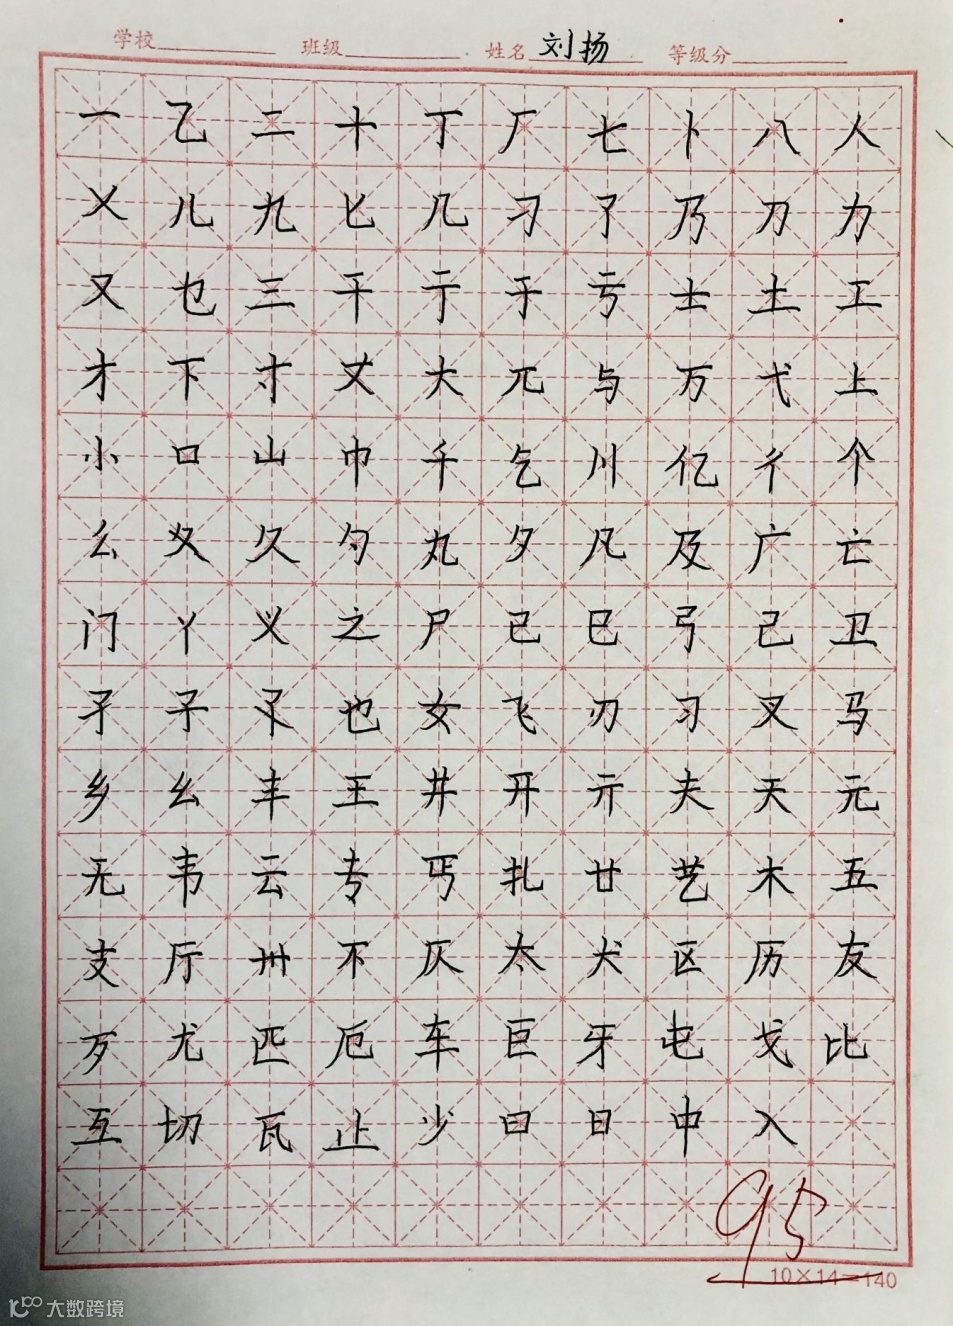 学校 班级 姓名 刘扬 等级分
一乙二十丁厂七卜八人
乂儿九匕几刁了乃刀力
又乜三干亍于亏士土工
才下寸丈大兀与万弋上
小口山巾千乞川亿彳个
么夂久勺丸夕凡及广亡
门丫义之尸已巳弓己卫
孑子孓也女飞刃习叉马
乡幺丰王井开亓夫天元
无韦云专丐扎廿艺木五
支厅卅不仄太犬区历友
歹尤匹厄车巨牙屯戈比
互切瓦止少曰日中入
95
10×14=140
大数跨境